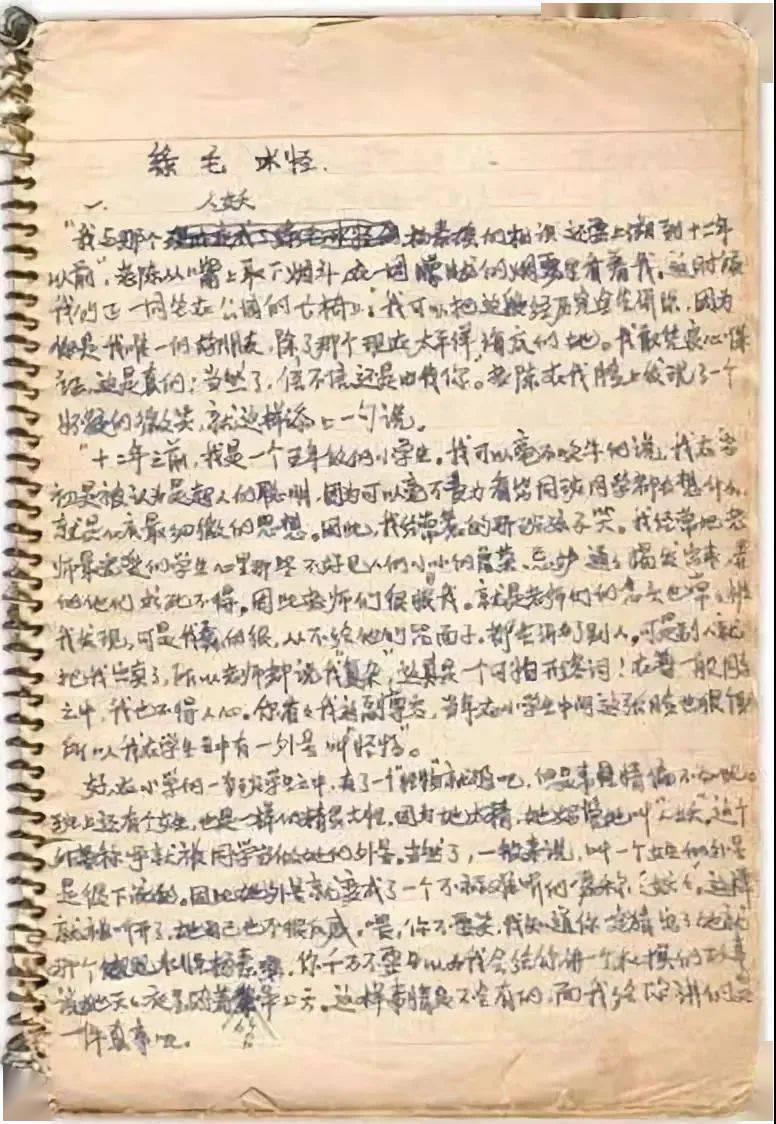 绿毛水怪
一、 人妖
“我与那个杨素瑶的相识还要上溯到十二年
以前”,老陈从嘴上取下烟斗,在一团朦胧的烟雾里看着我。这时候
我们正一同坐在公园的长椅上:“我可以把这段经历完全告诉你,因为
你是我唯一的好朋友,除了那个现在太平洋海底的她。我敢凭良心保
证,这是真的;当然了,信不信还是由你”。老陈在我脸上发现了一个
的微笑,就这样添上一句说。
“十二年之前,我是一个五年级的小学生。我可以毫不吹牛的说,我在当
初是被认为是超人的聪明,因为可以毫不费力看出同班同学都在想什么,
就是心底最细微的思想。因此,我经常的班孩子笑。我经常把老
师最宠爱的学生心里那些不好见人的小小的虚荣、忌妒通通揭发出来,弄
的他们求死不得。因此老师们很恨我。就是老师们的念头也常常被
我发现,可是我的很,从不给他们留面子,都告诉了别人。可是别人就
把我出卖了,所以老师都说我“复杂”,这真是一个可怕的形容词!在一般同学
之中,我也不得人心。你看看我这副尊容,当年在小学生中间这张脸也很
所以我在学生中有一外号叫“怪物”。
好,在小学的一班学生之中,有了一个“怪物”就够吧,但是事情偏不如此。
班上还有个女生,也是一样的精灵古怪,因为她太精,她妈管她叫“人妖”。这个
称呼就被同学当做她的外号。当然了,一般来说,叫一个女生的外号
是很下流的。因此她外号就变成了一个不难听的昵称
就被叫开了,她自己也不很反感。喂,你不要笑,我知道你猜出了她就
那个水怪杨素瑶。你千万不要以为我会给你讲一个的故事
说她天天夜里上天。这样事情是不会有的,而我给你讲的是
一件真事呢。